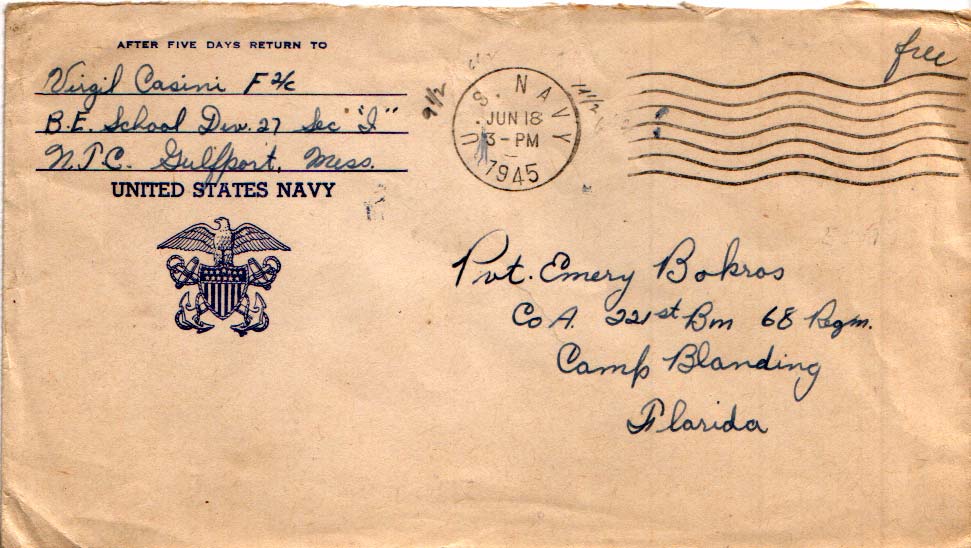 AFTER FIVE DAYS RETURN TO
Virgil Casini F 2/c
B.E. School Div. 27 Sec "I"
N.T.C. Gulfport, Miss.
UNITED STATES NAVY
9 1/2
U.S. NAVY
JUN 18
3-PM
1945
14 1/2
free
Pvt. Emery Bokros
Co A. 221st Bn 68 Regm.
Camp Blanding
Florida